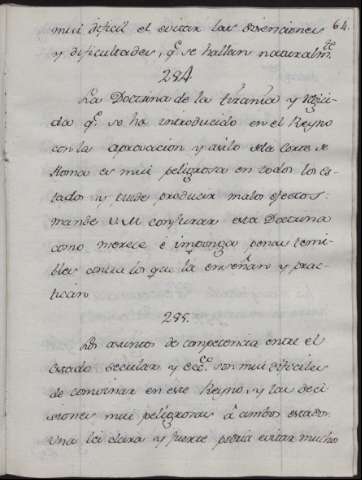 64.
mui dificil el evitar las disenciones
y dificultades, q.e se hallan naturalm.te
284.
La Doctrina de la tirania y regici-
da q.e se ha introducido en el Reyno
con la aprovacion y asilo de la Corte de
Roma es mui peligrosa en todos los es-
tados y puede producir malos efectos:
mande V.M. confutar esta Doctrina
como merece é imponga penas terri-
bles contra los que la enseñan y prac-
tican
285.
Los asuntos de competencia entre el
estado secular y ecc.co son mui dificiles
de convinar en este Reyno, y las deci-
siones mui peligrosas â ambos estados
una lei clara y fuerte podria evitar mucho